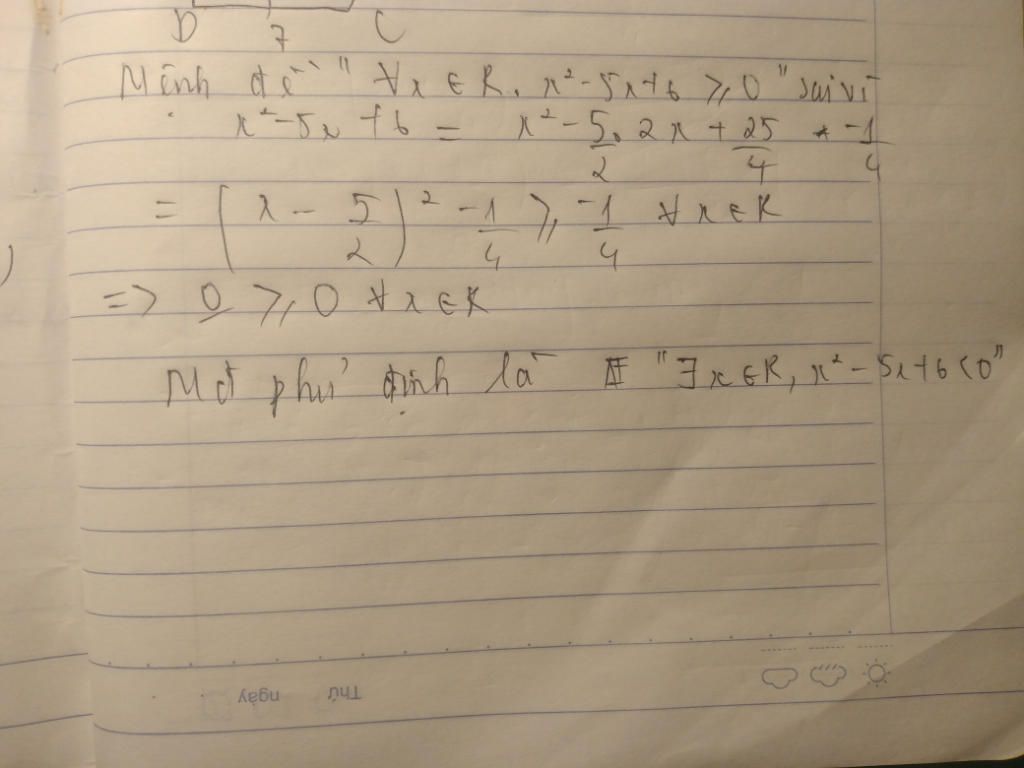 D 7 C
Mệnh đề " ∀x ∈ R, x² - 5x + 6 ≥ 0 " sai vì
x² - 5x + 6 = x² - 5/2 . 2x + 25/4 + -1/4
= ( x - 5/2 )² - 1/4 ≥ -1/4 ∀ x ∈ R
=> 0 ≥ 0 ∀ x ∈ R
Mđ phủ định là " ∃ x ∈ R, x² - 5x + 6 < 0 "
Thứ ngày